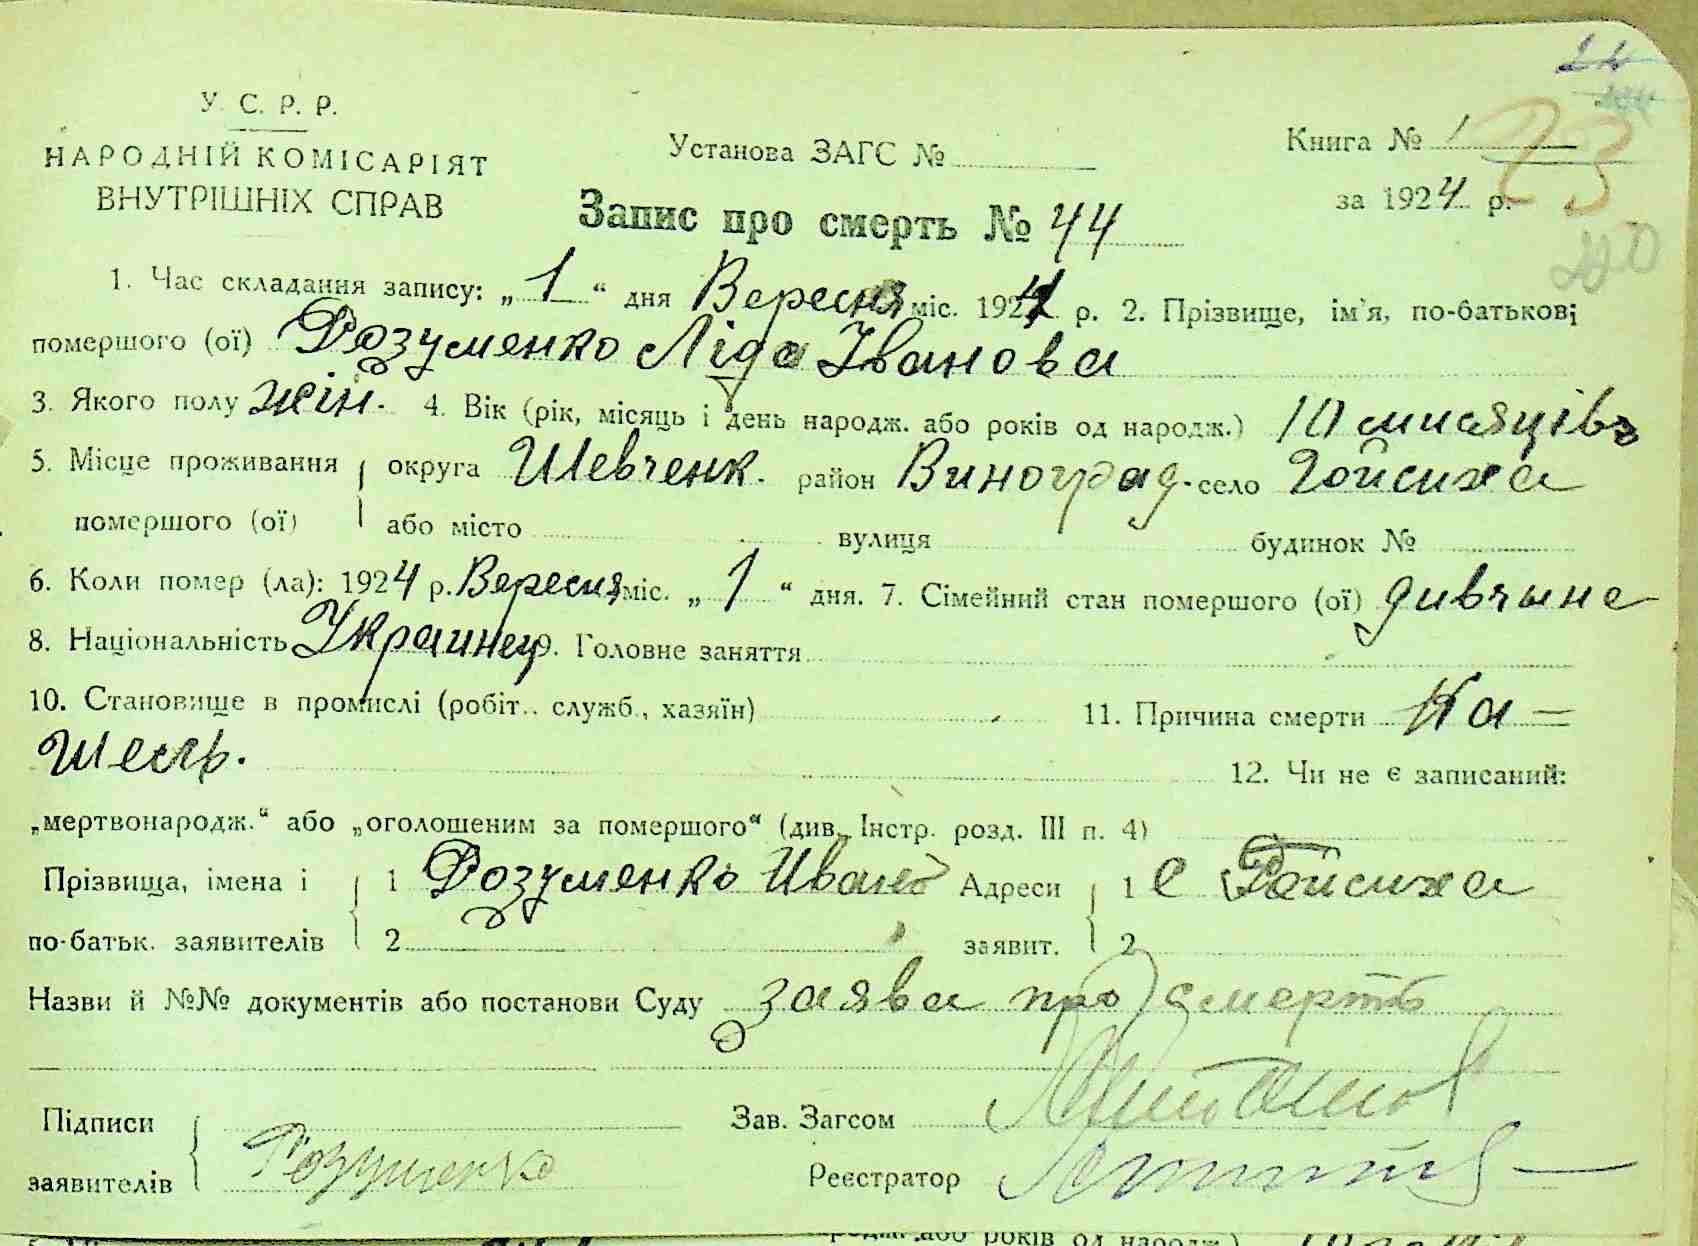 У. С. Р. Р.
НАРОДНІЙ КОМІСАРІЯТ
ВНУТРІШНІХ СПРАВ
Установа ЗАГС №
Книга № 1
23
за 1924 р.
Запис про смерть № 44
1. Час складання запису: „ 1 “ дня Вересня міс. 1924 р. 2. Прізвище, ім'я, по-батькові
помершого (ої) Розуменко Ліда Іванова
3. Якого полу жін. 4. Вік (рік, місяць і день народж. або років од народж.) 10 мисяцівъ
5. Місце проживання округа Шевченк. район Виноград. село Гойсиха
помершого (ої) або місто вулиця будинок №
6. Коли помер (ла): 1924 р. Вересня міс. „ 1 “ дня. 7. Сімейний стан помершого (ої) дивчына
8. Національність Украинец 9. Головне заняття
10. Становище в промислі (робіт., служб., хазяїн) 11. Причина смерти Ка-
шель.
12. Чи не є записаний:
„мертвонародж.“ або „оголошеним за помершого“ (див. Інстр. розд. III п. 4)
Прізвища, імена і 1 Розуменко Иванъ Адреси 1 с Гойсиха
по-батьк. заявителів 2 заявит. 2
Назви й №№ документів або постанови Суду заява про смерть
Підписи Зав. Загсом
заявителів Розуменко Реєстратор